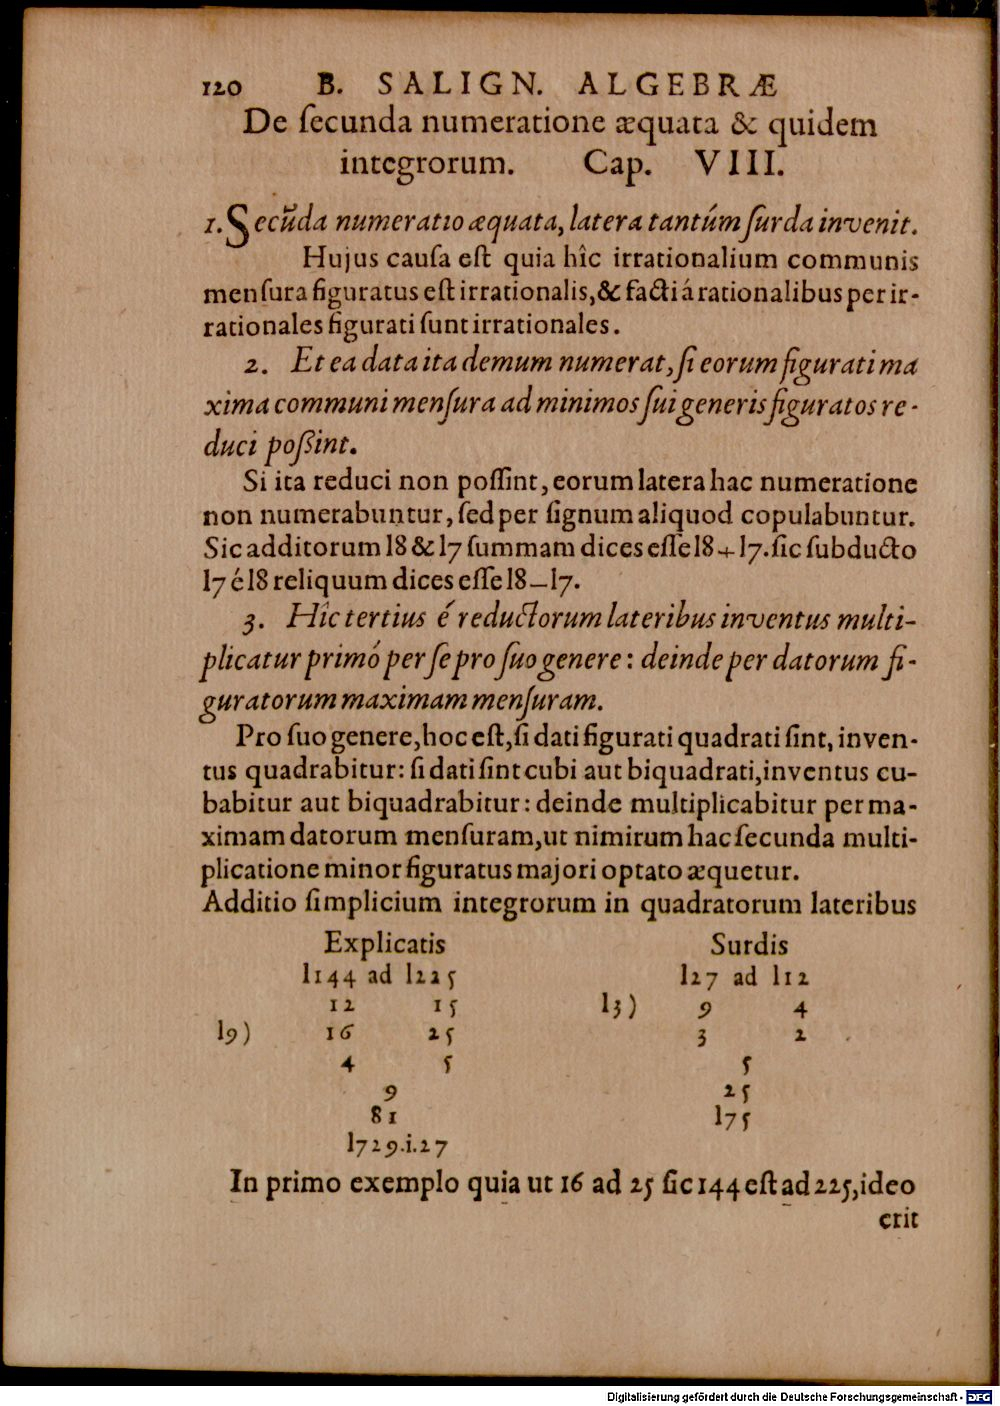 120 B. SALIGN. ALGEBRÆ
De ſecunda numeratione æquata & quidem
integrorum. Cap. VIII.
1. Secūda numeratio æquata, latera tantúm ſurda invenit.
Hujus cauſa eſt quia hîc irrationalium communis
menſura figuratus eſt irrationalis, & facti á rationalibus per ir-
rationales figurati ſunt irrationales.
2. Et ea data ita demum numerat, ſi eorum figurati ma
xima communi menſura ad minimos ſui generis figuratos re-
duci poßint.
Si ita reduci non poſſint, eorum latera hac numeratione
non numerabuntur, ſed per ſignum aliquod copulabuntur.
Sic additorum l8 & l7 ſummam dices eſſe l8+l7. ſic ſubducto
l7 é l8 reliquum dices eſſe l8—l7.
3. Hîc tertius é reductorum lateribus inventus multi-
plicatur primó per ſe pro ſuo genere: deinde per datorum fi-
guratorum maximam menſuram.
Pro ſuo genere, hoc eſt, ſi dati figurati quadrati ſint, inven-
tus quadrabitur: ſi dati ſint cubi aut biquadrati, inventus cu-
babitur aut biquadrabitur: deinde multiplicabitur per ma-
ximam datorum menſuram, ut nimirum hac ſecunda multi-
plicatione minor figuratus majori optato æquetur.
Additio ſimplicium integrorum in quadratorum lateribus
Explicatis Surdis
l144 ad l225 l27 ad l12
12 15 l3) 9 4
l9) 16 25 3 2
4 5 5
9 25
81 l75
l729.i.27
In primo exemplo quia ut 16 ad 25 ſic 144 eſt ad 225, ideo
erit
Digitalisierung gefördert durch die Deutsche Forschungsgemeinschaft - DFG